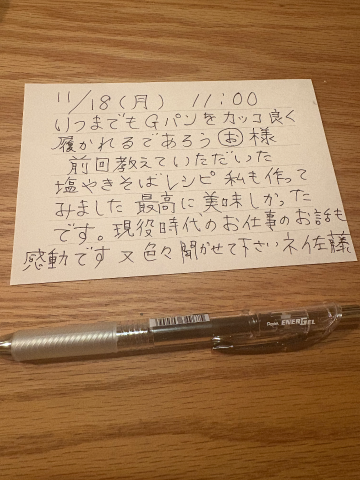 11/18(月) 11:00
いつまでもGパンをカッコ良く
履かれるであろう お 様
前回教えていただいた
塩やきそばレシピ 私も作って
みました 最高に美味しかった
です。現役時代のお仕事のお話も
感動です 又色々聞かせて下さいネ佐藤
Pentel ENERGEL